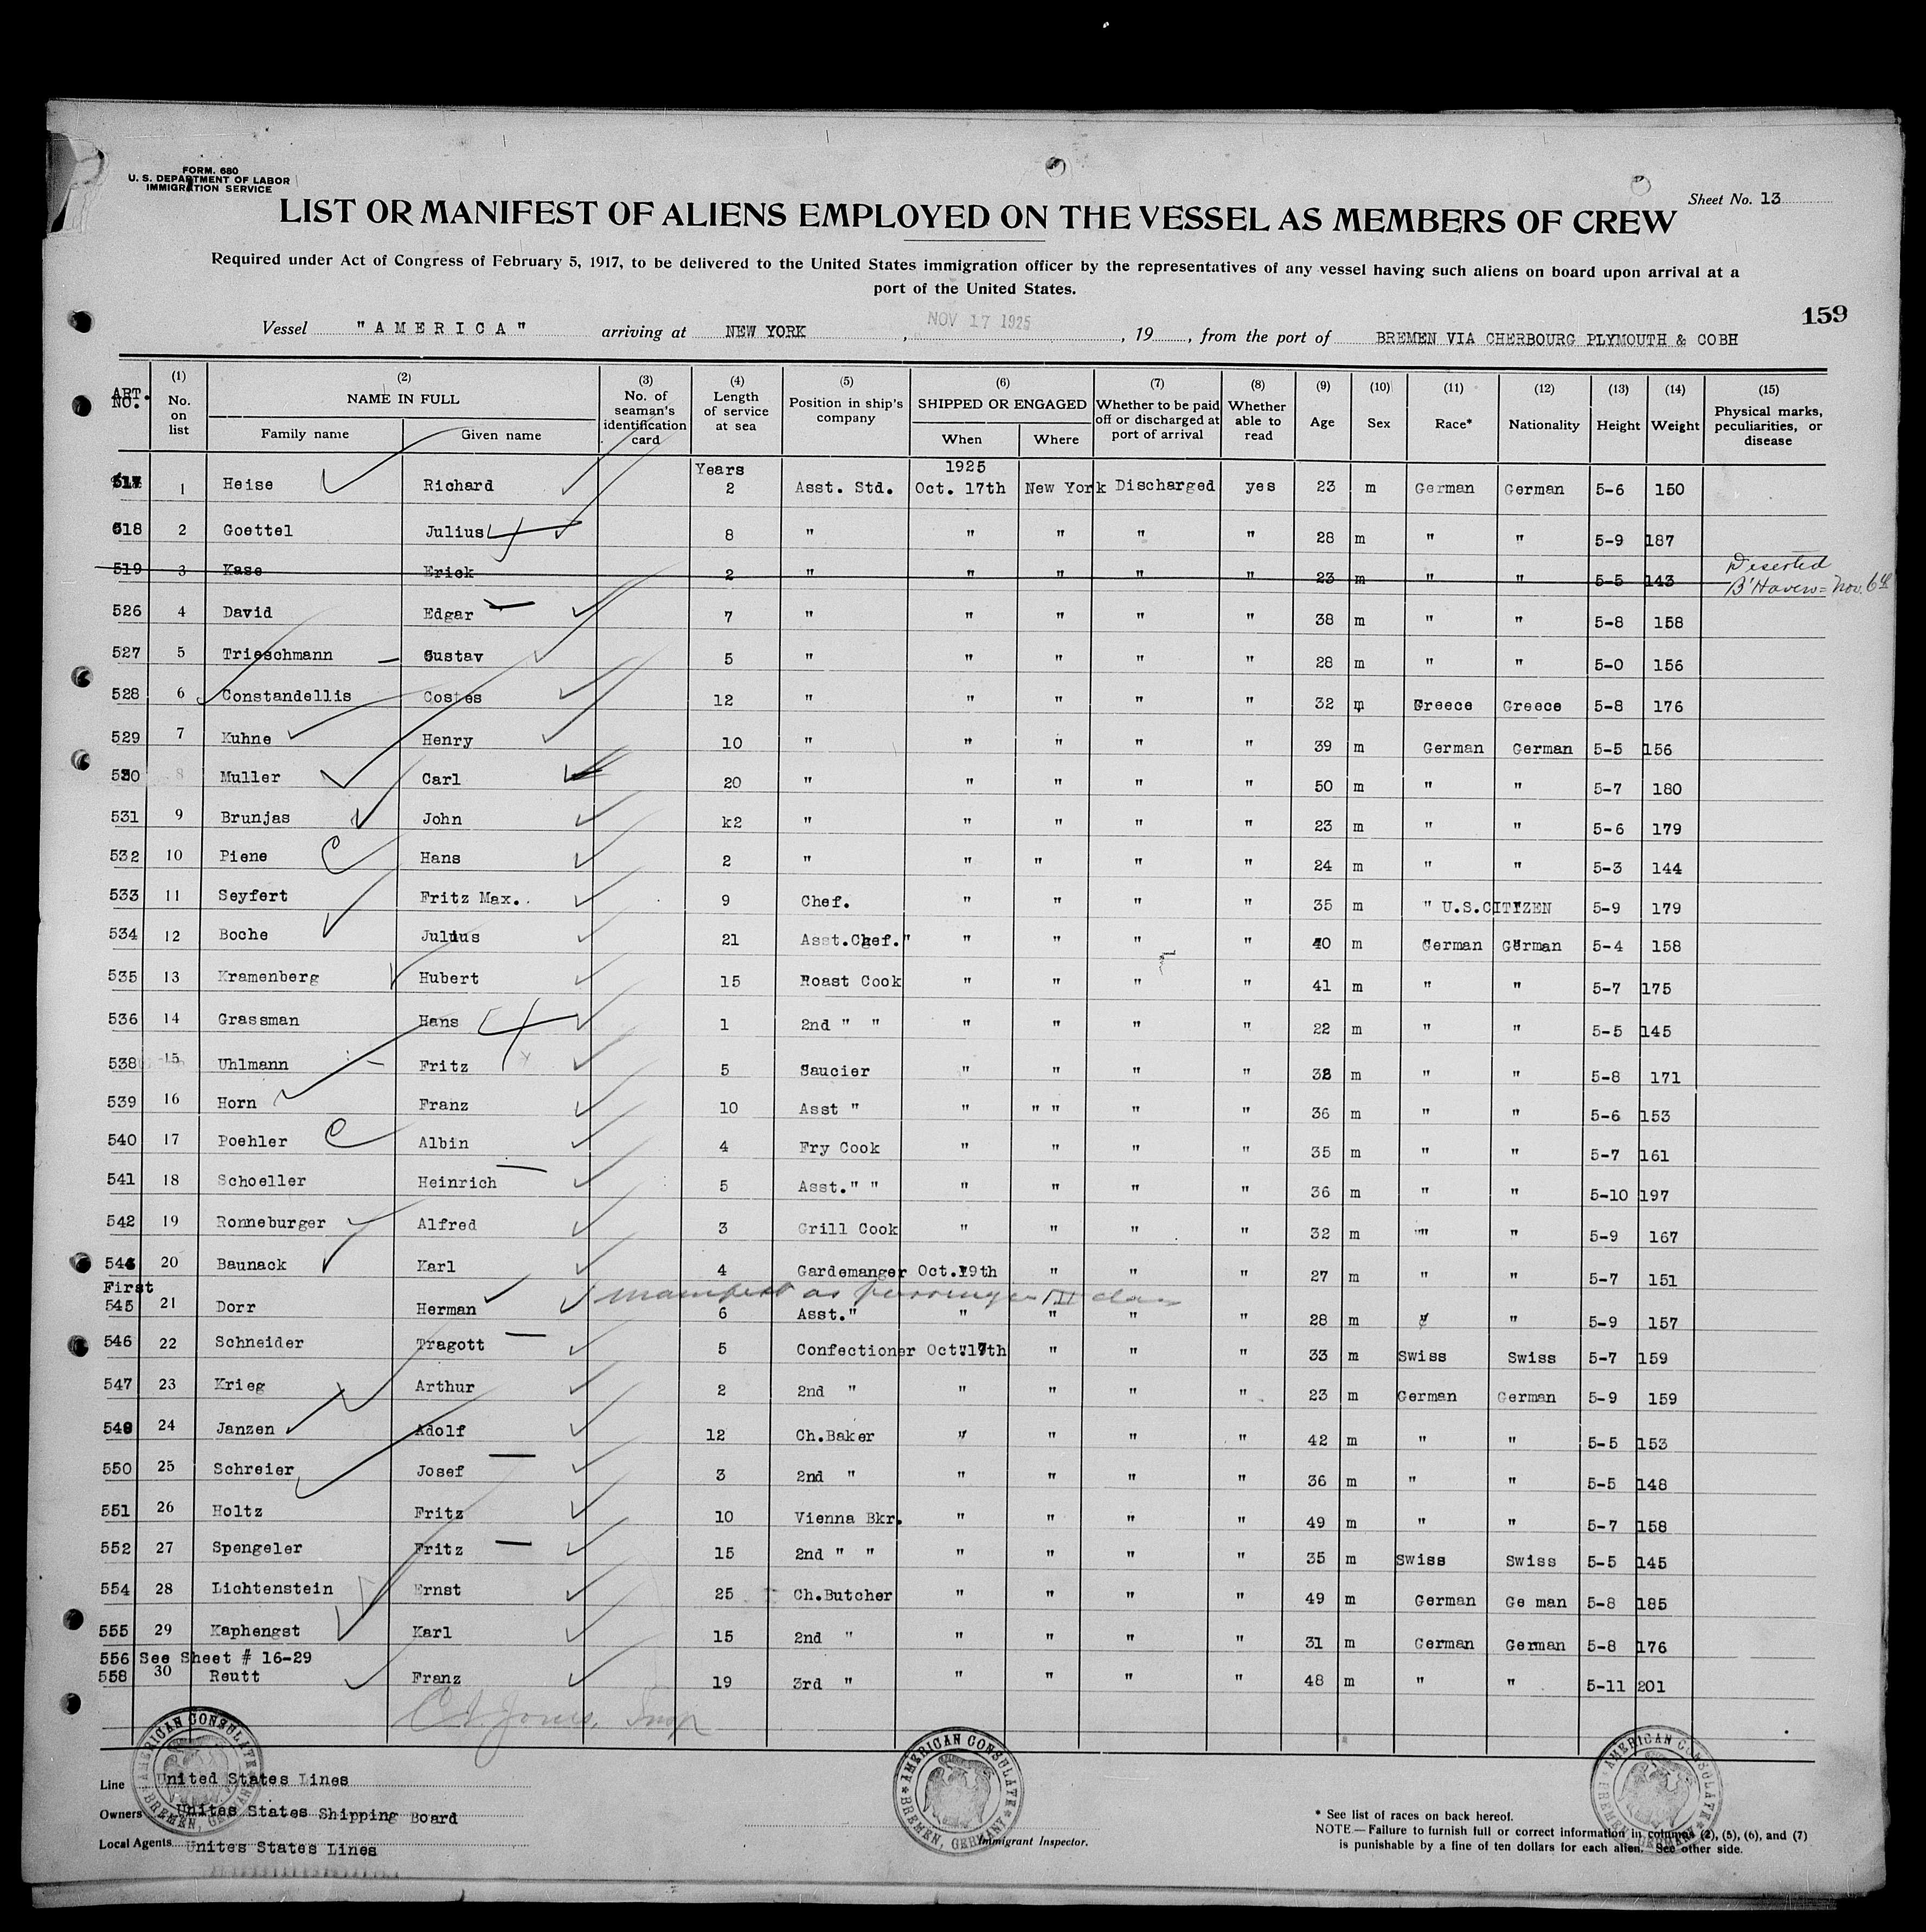 FORM. 680
U. S. DEPARTMENT OF LABOR
IMMIGRATION SERVICE
Sheet No. 13
LIST OR MANIFEST OF ALIENS EMPLOYED ON THE VESSEL AS MEMBERS OF CREW
Required under Act of Congress of February 5, 1917, to be delivered to the United States immigration officer by the representatives of any vessel having such aliens on board upon arrival at a
port of the United States.
159
Vessel "AMERICA" arriving at NEW YORK, NOV 17 1925, 19, from the port of BREMEN VIA CHERBOURG PLYMOUTH & COBH
ART. NO. (1) No. on list (2) NAME IN FULL Family name Given name (3) No. of seaman's identification card (4) Length of service at sea (5) Position in ship's company (6) SHIPPED OR ENGAGED When Where (7) Whether to be paid off or discharged at port of arrival (8) Whether able to read (9) Age (10) Sex (11) Race* (12) Nationality (13) Height (14) Weight (15) Physical marks, peculiarities, or disease
Years 1925
517 1 Heise Richard 2 Asst. Std. Oct. 17th New York Discharged yes 23 m German German 5-6 150
518 2 Goettel Julius 8 " " " " " 28 m " " 5-9 187
519 3 Kase Erick 2 " " " " " 23 m " " 5-5 143 Deserted B'Haven = Nov. 6th
526 4 David Edgar 7 " " " " " 38 m " " 5-8 158
527 5 Trieschmann Gustav 5 " " " " " 28 m " " 5-0 156
528 6 Constandellis Costes 12 " " " " " 32 m Greece Greece 5-8 176
529 7 Kuhne Henry 10 " " " " " 39 m German German 5-5 156
530 8 Muller Carl 20 " " " " " 50 m " " 5-7 180
531 9 Brunjas John k2 " " " " " 23 m " " 5-6 179
532 10 Piene Hans 2 " " " " " 24 m " " 5-3 144
533 11 Seyfert Fritz Max. 9 Chef. " " " " 35 m " U.S.CITIZEN 5-9 179
534 12 Boche Julius 21 Asst.Chef." " " " " 40 m German German 5-4 158
535 13 Kramenberg Hubert 15 Roast Cook " " " " 41 m " " 5-7 175
536 14 Grassman Hans 1 2nd " " " " " " 22 m " " 5-5 145
538 15 Uhlmann Fritz 5 Saucier " " " " 38 m " " 5-8 171
539 16 Horn Franz 10 Asst " " " " " " 36 m " " 5-6 153
540 17 Poehler Albin 4 Fry Cook " " " " 35 m " " 5-7 161
541 18 Schoeller Heinrich 5 Asst." " " " " " 36 m " " 5-10 197
542 19 Ronneburger Alfred 3 Grill Cook " " " " 32 m " " 5-9 167
544 20 Baunack Karl 4 Gardemanger Oct.19th " " " 27 m " " 5-7 151
First manifest as passenger III class
545 21 Dorr Herman 6 Asst." " " " " 28 m " " 5-9 157
546 22 Schneider Tragott 5 Confectioner Oct.17th " " " 33 m Swiss Swiss 5-7 159
547 23 Krieg Arthur 2 2nd " " " " " 23 m German German 5-9 159
548 24 Janzen Adolf 12 Ch.Baker " " " " 42 m " " 5-5 153
550 25 Schreier Josef 3 2nd " " " " " 36 m " " 5-5 148
551 26 Holtz Fritz 10 Vienna Bkr. " " " " 49 m " " 5-7 158
552 27 Spengeler Fritz 15 2nd " " " " " " 35 m Swiss Swiss 5-5 145
554 28 Lichtenstein Ernst 25 Ch.Butcher " " " " 49 m German Ge man 5-8 185
555 29 Kaphengst Karl 15 2nd " " " " " 31 m German German 5-8 176
556 See Sheet # 16-29
558 30 Reutt Franz 19 3rd " " " " " 48 m " " 5-11 201
Jones, Insp
AMERICAN CONSULATE BREMEN, GERMANY
AMERICAN CONSULATE BREMEN, GERMANY
AMERICAN CONSULATE BREMEN, GERMANY
Line United States Lines
Owners Unites States Shipping Board
Local Agents Unites States Lines
Immigrant Inspector.
* See list of races on back hereof.
NOTE.—Failure to furnish full or correct information in columns (2), (5), (6), and (7)
is punishable by a fine of ten dollars for each alien. See other side.